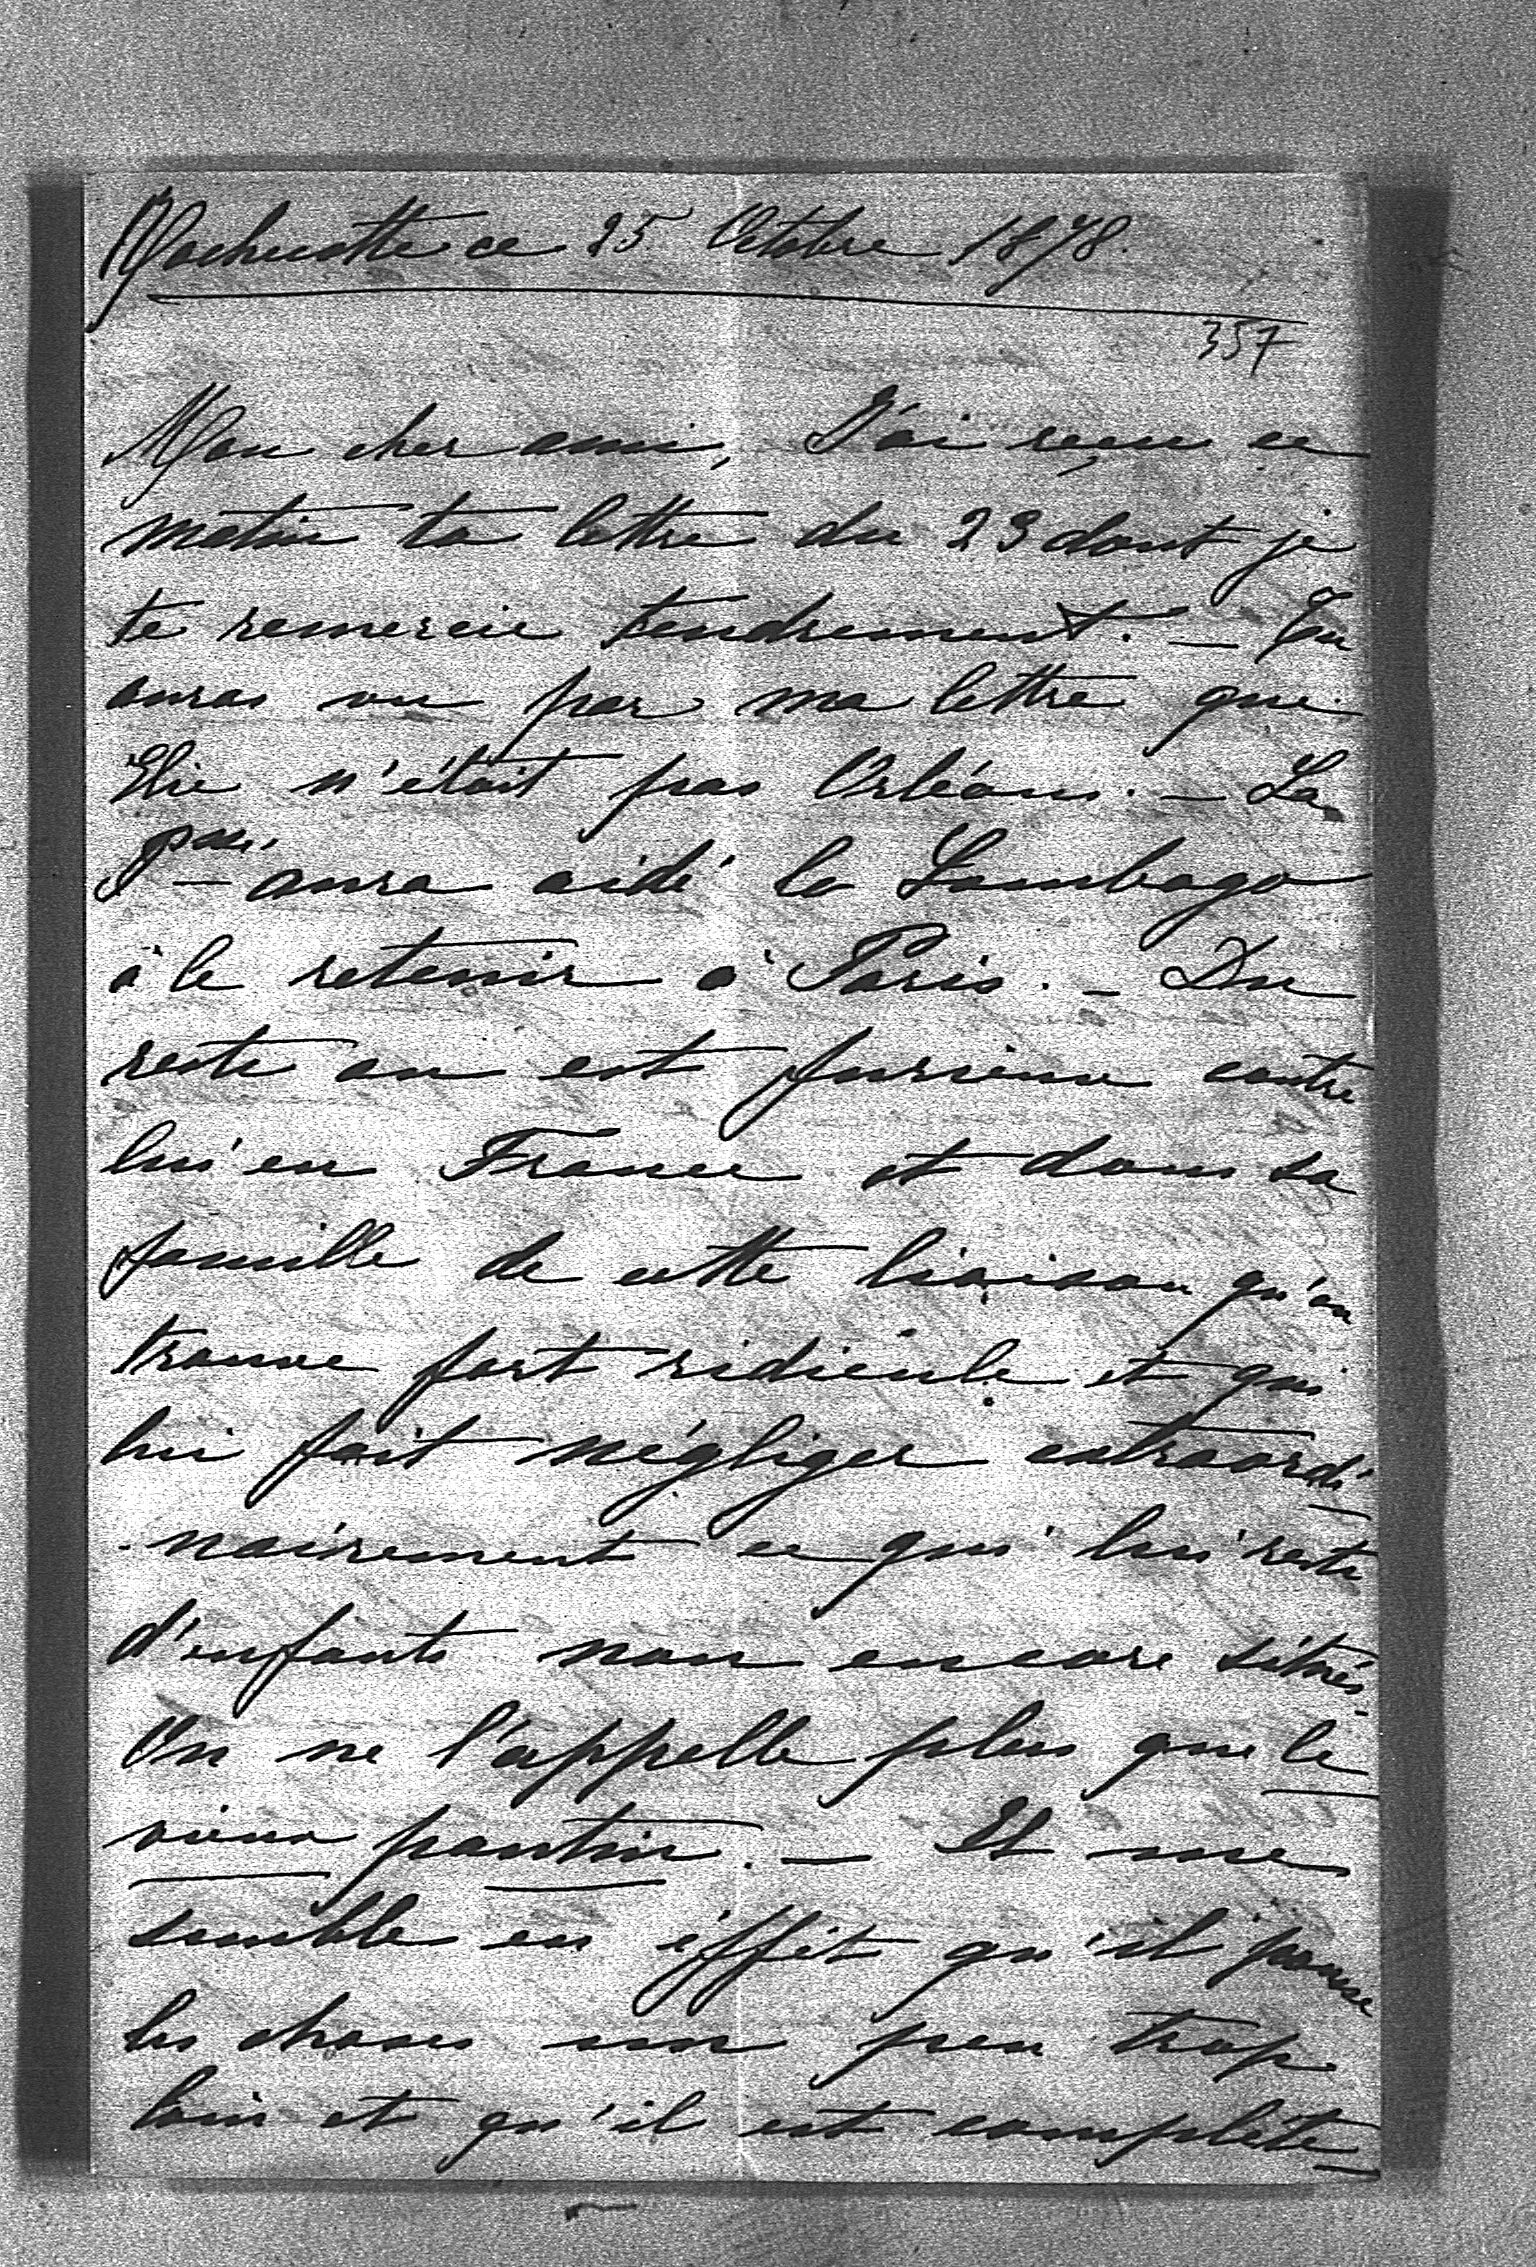 Rochecotte ce 25 Octobre 1878.
357
Mon cher ami, J'ai reçu ce
matin ta lettre du 23 dont je
te remercie tendrement. — Tu
auras vu par ma lettre que
Elie n'était pas Orléans. — La
Psse aura aidé le Lumbago
à le retenir à Paris. — Du
reste on est furieux contre
lui en France et dans sa
famille de cette liaison qu'on
trouve fort ridicule et qui
lui fait négliger extraordi-
-nairement ce qui lui reste
d'enfants non encore situés.
On ne l'appelle plus que le
vieux pantin. — Il me
semble en éffet qu'il pousse
les choses un peu trop
loin et qu'il est complète-